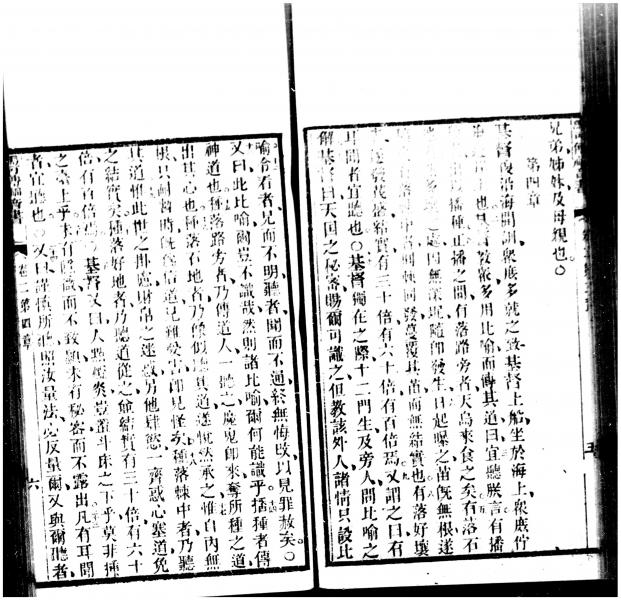 兄弟姊妹及母親也○
第四章
基督復沿海開訓衆庶多就之致基督上船坐於海上衆庶佇
也基督教衆多用比喻而傳其道曰宜聽朕言有播
播種正播之間有落路旁者天鳥來食之矣有落石
多土之處因無深坭隨即發生日起曝之苗旣無根遂
同發蔓覆其苗而無結實也有落好壤
遂發茂盛結實有三十倍有六十倍有百倍焉又謂之曰有
耳聞者宜聽也○基督獨在之際十二門生及旁人問比喻之
解基督曰天國之秘密賜爾可識之但教該外人諸情只設比
喻俞看者見而不明聽者聞而不通終無悔改以見罪赦矣○
又曰此比喻爾豈不識哉然則諸比喻爾何能識乎播種者傳
神道也種落路旁者乃傳道人一聽之魔鬼卽來奪所種之道
出其心也種落石地者乃像似聽其道遂悅法承之惟自內無
根只耐暫時旣爲信道見難受害卽見怪矣種落棘中者乃聽
其道惟此世之掛慮財帛之迷惑另他肆慾一齊惑心塞道免
之結實矣種落好地者乃聽道從之俞結實有三十倍有六十
倍有百倍焉○基督又曰人點燈炎豈蓋斗床之下乎莫非捶
之臺上乎未有隱識而不致顯未有秘密而不露出凡有耳聞
者宜聽也○又曰謹慎所聽照汝量法必反量爾又與爾聽者
卷二第四章
六
五